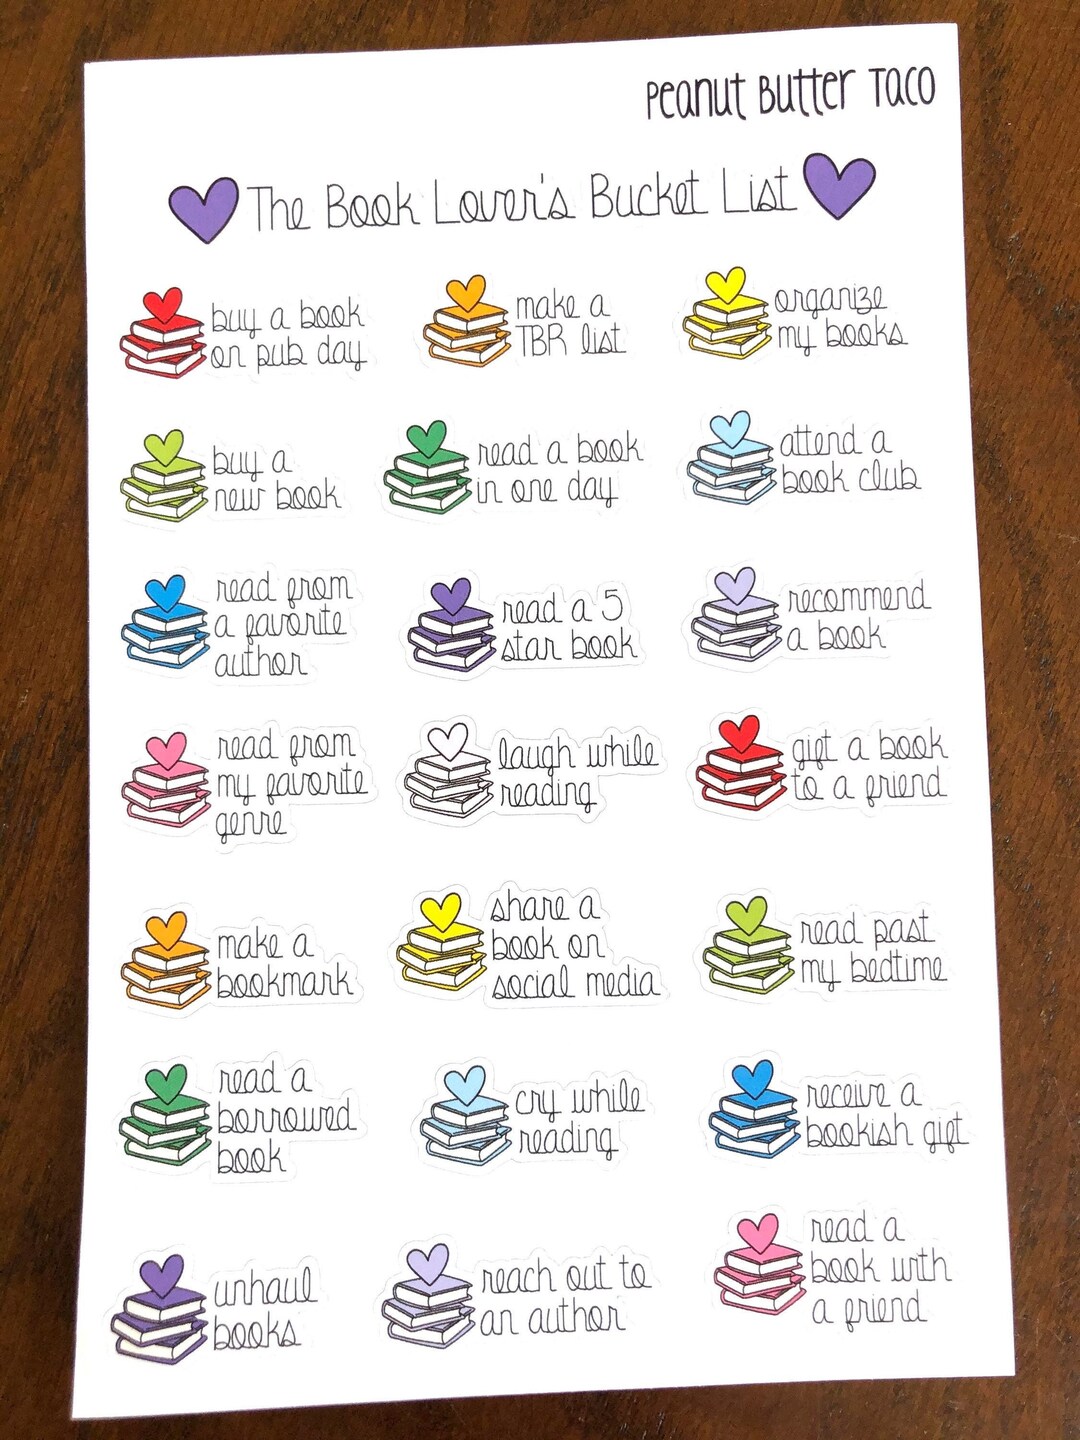 Peanut Butter Taco
The Book Lover's Bucket List
buy a book
on pub day
make a
TBR list
organize
my books
buy a
new book
read a book
in one day
attend a
book club
read from
a favorite
author
read a 5
star book
recommend
a book
read from
my favorite
genre
laugh while
reading
gift a book
to a friend
make a
bookmark
share a
book on
social media
read past
my bedtime
read a
borrowed
book
cry while
reading
receive a
bookish gift
unhaul
books
reach out to
an author
read a
book with
a friend